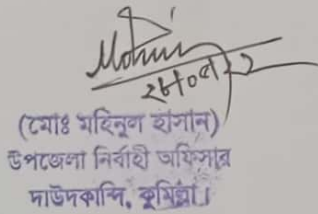 Mohin
(মোঃ মহিনুল হাসান)
উপজেলা নির্বাহী অফিসার
দাউদকান্দি, কুমিল্লা।